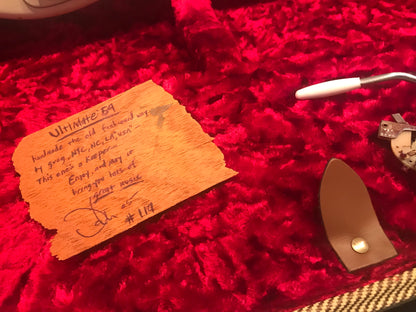 Ultimate 59
handmade the old fashioned way
by greg, NYC, NC, LA, USA
This one's a keeper –
Enjoy, and may it
bring you lots of
great music
#114